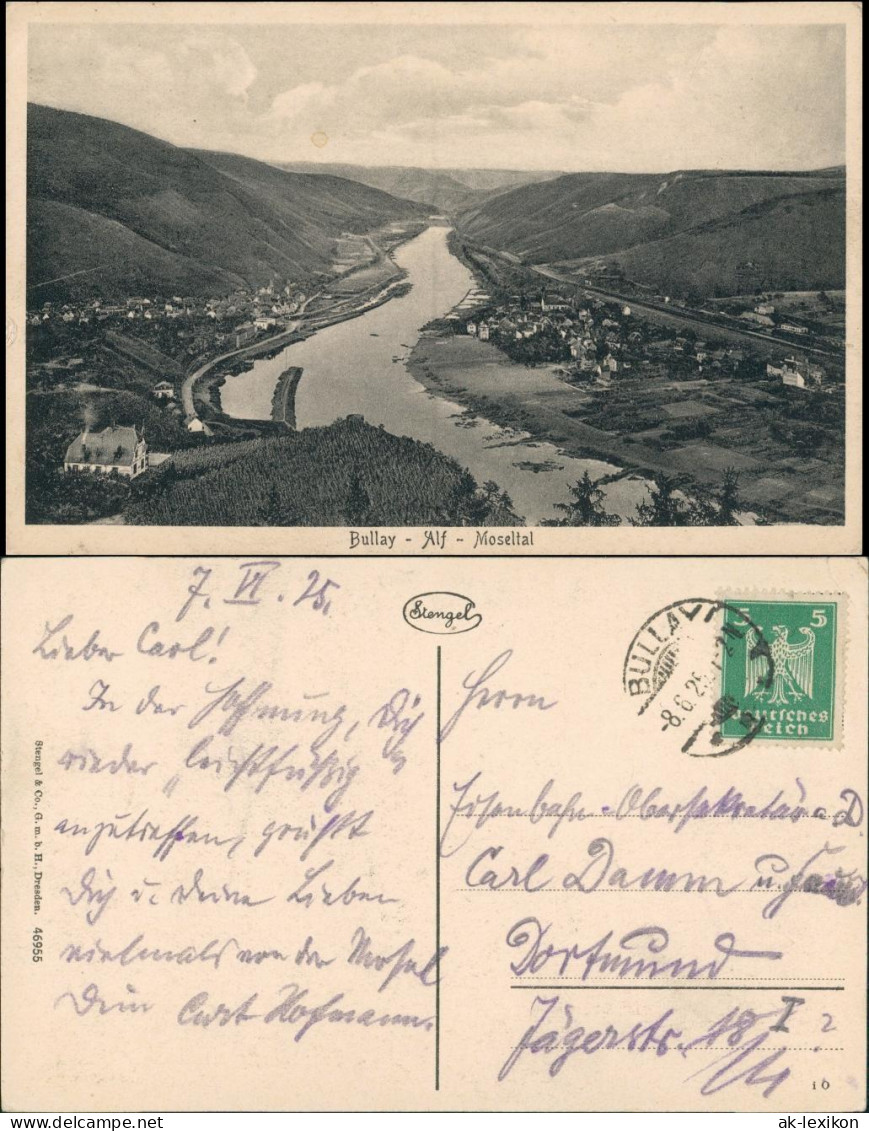 Bullay - Alf - Moseltal
7. VI. 25.
Lieber Carl!
In der Hoffnung, Dich
wieder „leichtfüßig"
anzutreffen, grüßt
Dich u. Deine Lieben
vielmals von der Mosel
Dein Curt Hofmann.
Stengel & Co., G. m. b. H., Dresden. 46955
Stengel
BULLAY
-8.6.25
5 5
Deutsches
Reich
Herrn
Eisenbahn-Obersekretär a. D.
Carl Damm u.
Dortmund
Jägerstr. 18 I
16
ak-lexikon